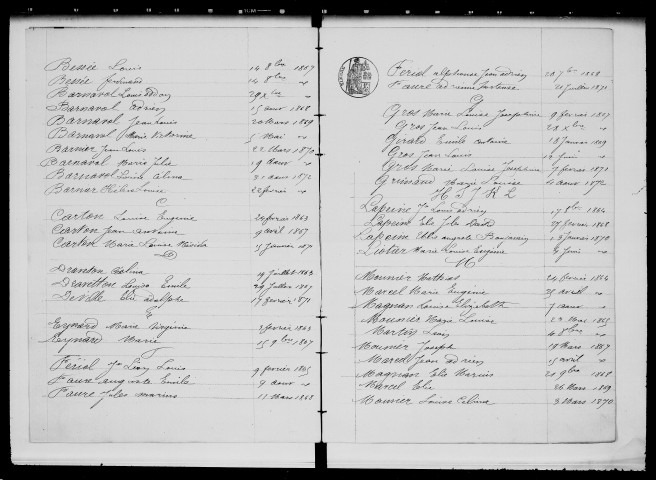 Bessée Louis 14 8bre 1867
Bessée 14 8bre "
Barnaval Louis 29 "
Barnaval Adrien 15 aout 1868
Barnaval Jean Louis 20 Mars 1869
Barnaval Marie Victorine 5 Mai "
Barnier Jean Louis 22 Mars 1870
Barnaval Marie Julie 19 aout "
Barnaval Louise 21 aout 1872
Barnar Hélène Louise 22 février "
C
Carton Louise Eugénie 20 février 1863
Carton Jean Antoine 9 avril 1867
Carton Marie Louise 15 Janvier 1871
D
Dranton 19 Juillet 1863
Drantton Louis Emile 29 Juillet 1867
Deville Elie adolphe 19 février 1871
E
Eynard Marie Virginie 2 février 1863
Eynard Marie 25 9bre 1867
F
Fériol Jn Léon Louis 9 février 1865
Faure auguste Emile 9 aout "
Faure Jules marius 13 Mars 1868
Fériol alphonse Jean adrien 20 7bre 1868
Faure 21 Juillet 1871
G
Gros Marie Louise Joséphine 9 février 1867
Gros Jean Louis 28 Xbre "
Girard Emile 13 Janvier 1869
Gros Jean Louis 10 Juin "
Gros Marie Louise Joséphine 7 février 1871
Grimaud Marie Louise 4 aout 1872
H I J K L
Lapeine Jn Louis adrien 17 8bre 1864
Lapeine 27 février 1868
Lapeine auguste 13 février 1870
Liotier Marie Louise Eugénie 4 Juin "
M
Mounier Mathias 24 février 1864
Marcel Marie Eugénie 25 avril "
Magnan Louise Elizabeth 7 aout "
Mounier Marie Louise 22 Mars 1865
Martin Louis "
Mounier Joseph 18 Mars 1867
Marcel Jean adrien 15 avril "
Magnan Elie Marius 20 9bre 1868
Marcel Elie 26 Mars 1869
Mounier Louise Célina 3 Mars 1870